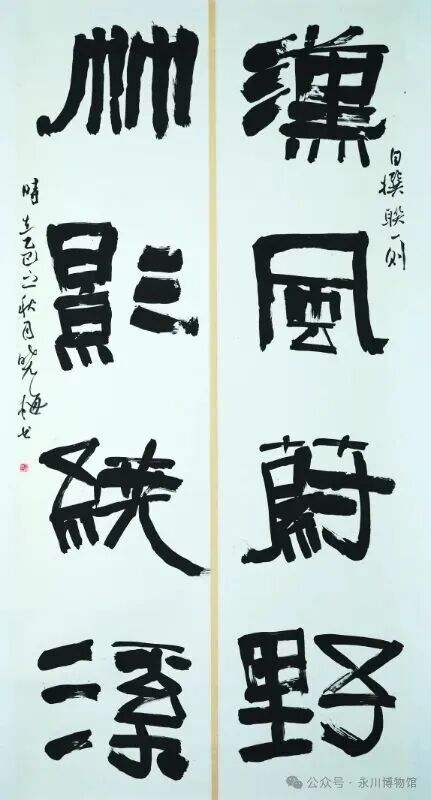 漢風蔚野
自撰聯一则
竹影溪
時在乙巳之秋月曉梅书
公众号·永川博物馆